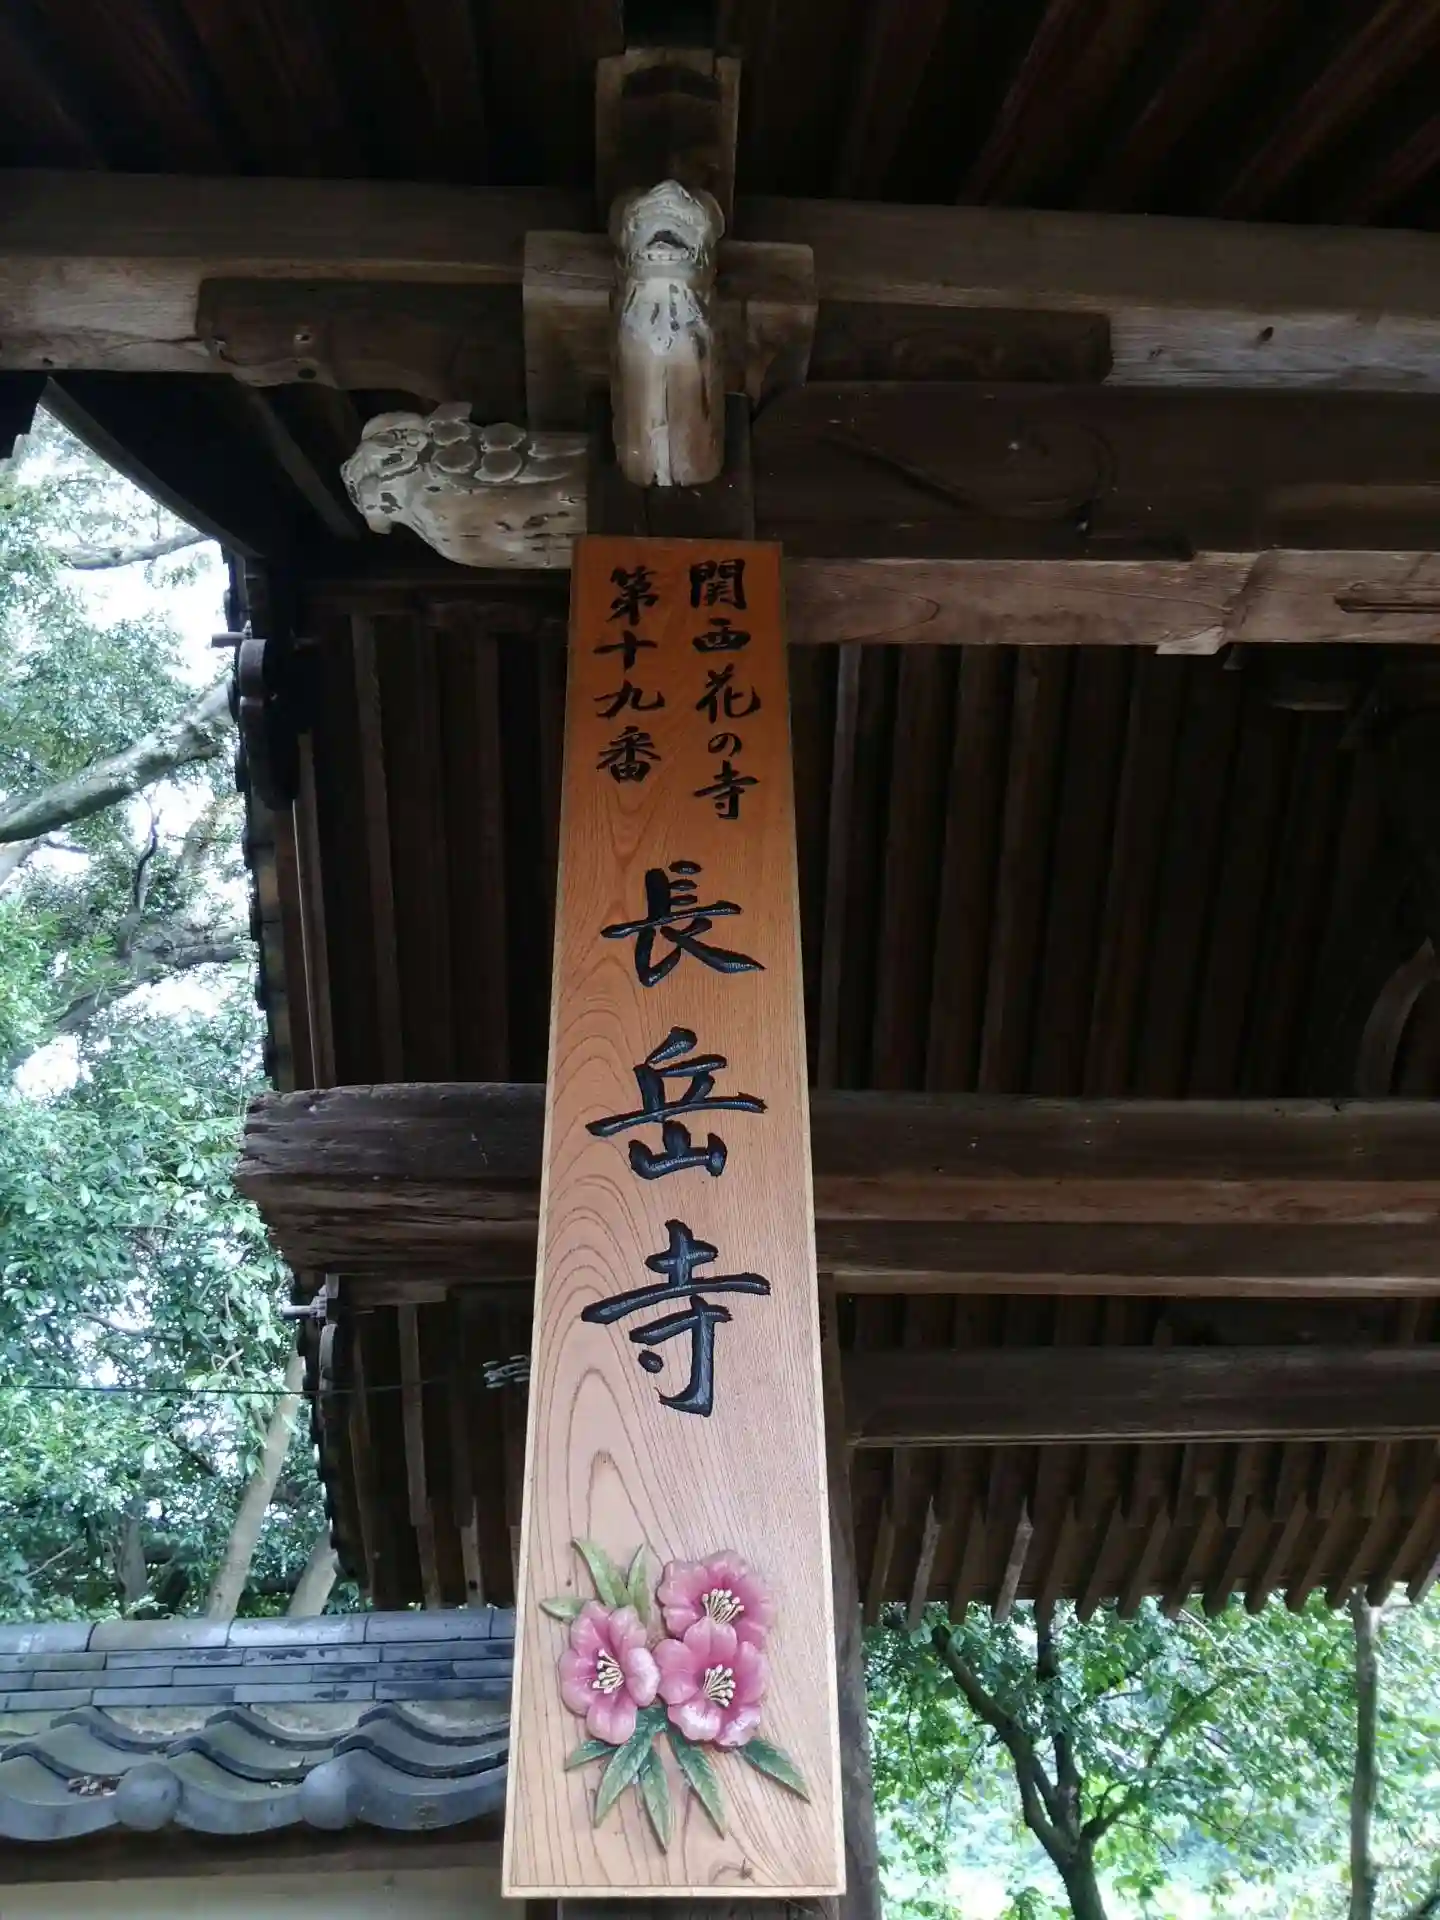 関西花の寺
第十九番
長岳寺